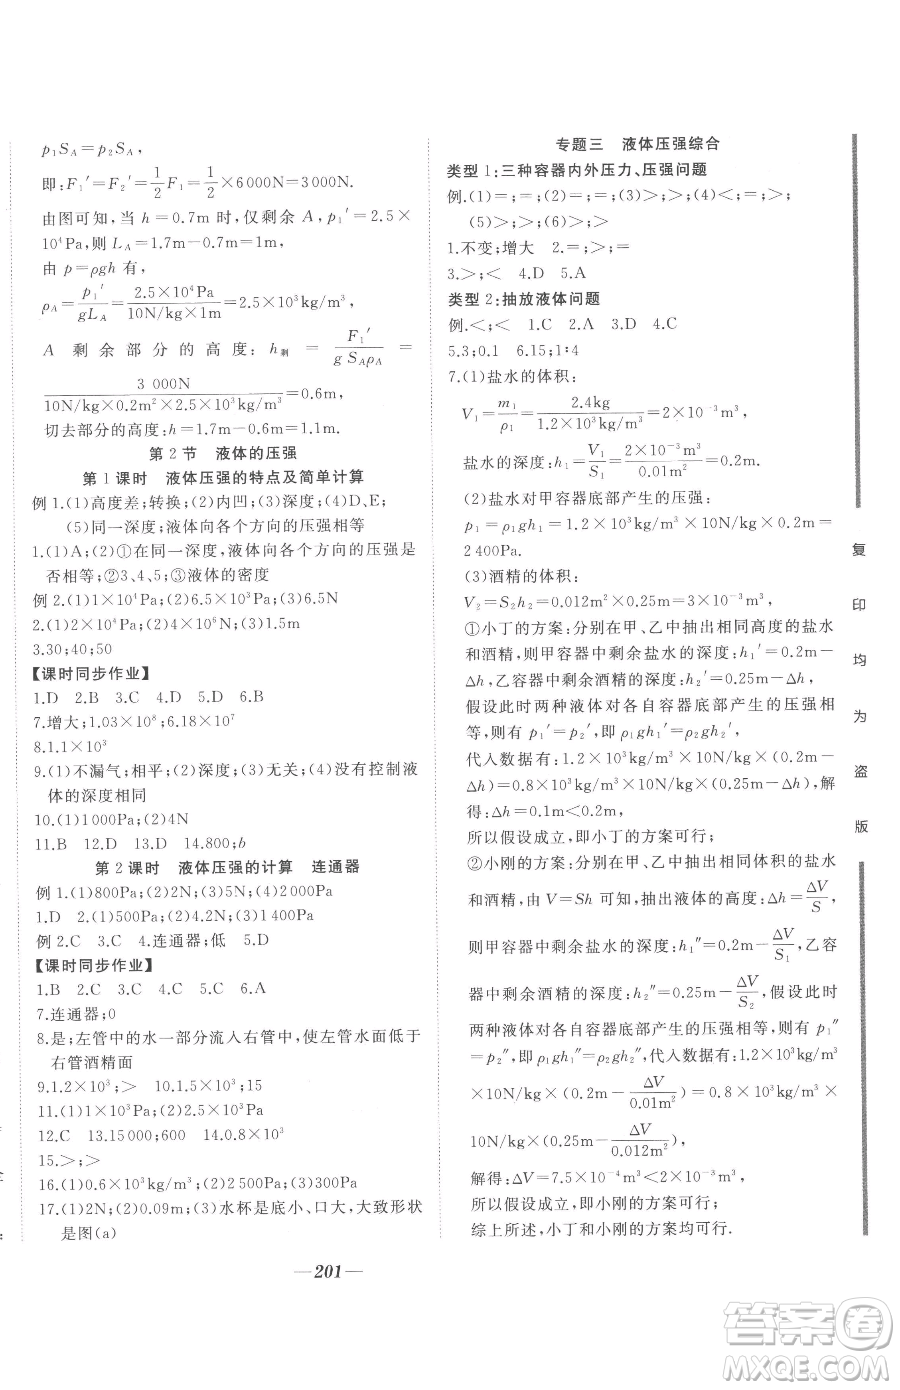 p₁S_A=p₂S_A,
即:F₁′=F₂′=1/2F₁=1/2×6000N=3000N
由图可知,当 h=0.7m 时,仅剩余 A,p₁′=2.5×
10⁴Pa,则 L_A=1.7m-0.7m=1m
由 p=ρgh 有,
ρ_A=p₁′/gL_A=2.5×10⁴Pa/10N/kg×1m=2.5×10³kg/m³,
A 剩余部分的高度:h剩=F₁′/g S_Aρ_A=
3 000N/10N/kg×0.2m²×2.5×10³kg/m³=0.6m,
切去部分的高度:h=1.7m-0.6m=1.1m.
第 2 节 液体的压强
第 1 课时 液体压强的特点及简单计算
例 1.(1)高度差;转换;(2)内凹;(3)深度;(4)D、E;
(5)同一深度;液体向各个方向的压强相等
1.(1)A;(2)①在同一深度,液体向各个方向的压强是
否相等;②3、4、5;③液体的密度
例 2.(1)1×10⁴Pa;(2)6.5×10³Pa;(3)1×10³Pa
2.(1)2×10⁴Pa;(2)4×10⁶N;(3)1.5m
3.30;40;50
【课时同步作业】
1.D 2.B 3.C 4.D 5.D 6.B
7.增大;1.03×10⁸;6.18×10⁷
8.1.1×10³
9.(1)不漏气;相平;(2)深度;(3)无关;(4)没有控制液
体的深度相同
10.(1)1000Pa;(2)4N
11.B 12.D 13.D 14.800;b
第 2 课时 液体压强的计算 连通器
例 1.(1)800Pa;(2)2N;(3)2000Pa
1.D 2.(1)500Pa;(2)4.2N;(3)1400Pa
例 2.C 3.C 4.连通器;低 5.D
【课时同步作业】
1.B 2.C 3.D 4.C 5.C 6.A
7.连通器;0
8.是;左管中的水一部分流入右管中,使左管水面低于
右管酒精面
9.1.2×10³;> 10.1.5×10³;15
11.(1)1×10³Pa;(2)2.5×10³Pa
12.C 13.15000;600 14.0.8×10³
15.>;>
16.(1)600Pa;(2)1200Pa;(3)300Pa
17.(1)2N;(2)0.09m;(3)水杯是底小、口大,大致形状
是图(a)
专题三 液体压强综合
类型 1:三种容器内外压力、压强问题
例.(1)=;=;(2)=;=;(3)>;>;(4)<;=;>;
(5)>;>;(6)>;>
1.不变;增大 2.=;>;=
3.>;< 4.D 5.A
类型 2:抽放液体问题
例.<;< 1.C 2.A 3.D 4.C
5.3;0.1 6.15;1:4
7.(1)盐水的体积:
V₁=m₁/ρ₁=2.4kg/1.2×10³kg/m³=2×10⁻³m³,
盐水的深度:h₁=V₁/S₁=2×10⁻³m³/0.01m²=0.2m.
(2)盐水对甲容器底部产生的压强:
p₁=ρ₁gh₁=1.2×10³kg/m³×10N/kg×0.2m=
2400Pa.
(3)酒精的体积:
V₂=S₂h₂=0.012m²×0.25m=3×10⁻³m³,
①小丁的方案:分别在甲、乙中抽出相同高度的盐水
和酒精,则甲容器中剩余盐水的深度:h₁′=0.2m-
Δh;乙容器中剩余酒精的深度:h₂′=0.25m-Δh,
假设此时两种液体对各自容器底部产生的压强相
等,则有 p₁′=p₂′,即 ρ₁gh₁′=ρ₂gh₂′,
代入数据有:1.2×10³kg/m³×10N/kg×(0.2m-
Δh)=0.8×10³kg/m³×10N/kg×(0.25m-Δh),解
得:Δh=0.1m<0.2m;
所以假设成立,即小丁的方案可行;
②小刚的方案:分别在甲、乙中抽出相同体积的盐水
和酒精,由 V=Sh 可知,抽出液体的高度:Δh=ΔV/S,
则甲容器中剩余盐水的深度:h₁″=0.2m-ΔV/S₁,乙容
器中剩余酒精的深度:h₂″=0.25m-ΔV/S₂,假设此时
两种液体对各自容器底部产生的压强相等,则有 p₁″
=p₂″,即 ρ₁gh₁″=ρ₂gh₂″,代入数据有:1.2×10³kg/m³
×10N/kg×(0.2m-ΔV/0.01m²)=0.8×10³kg/m³×
10N/kg×(0.25m-ΔV/0.012m²),
解得:ΔV=7.5×10⁻⁴m³<2×10⁻³m³,
所以假设成立,即小刚的方案可行.
综上所述,小丁和小刚的方案均可行.
复印均为盗版
—201—
答案圈
MXQE.COM